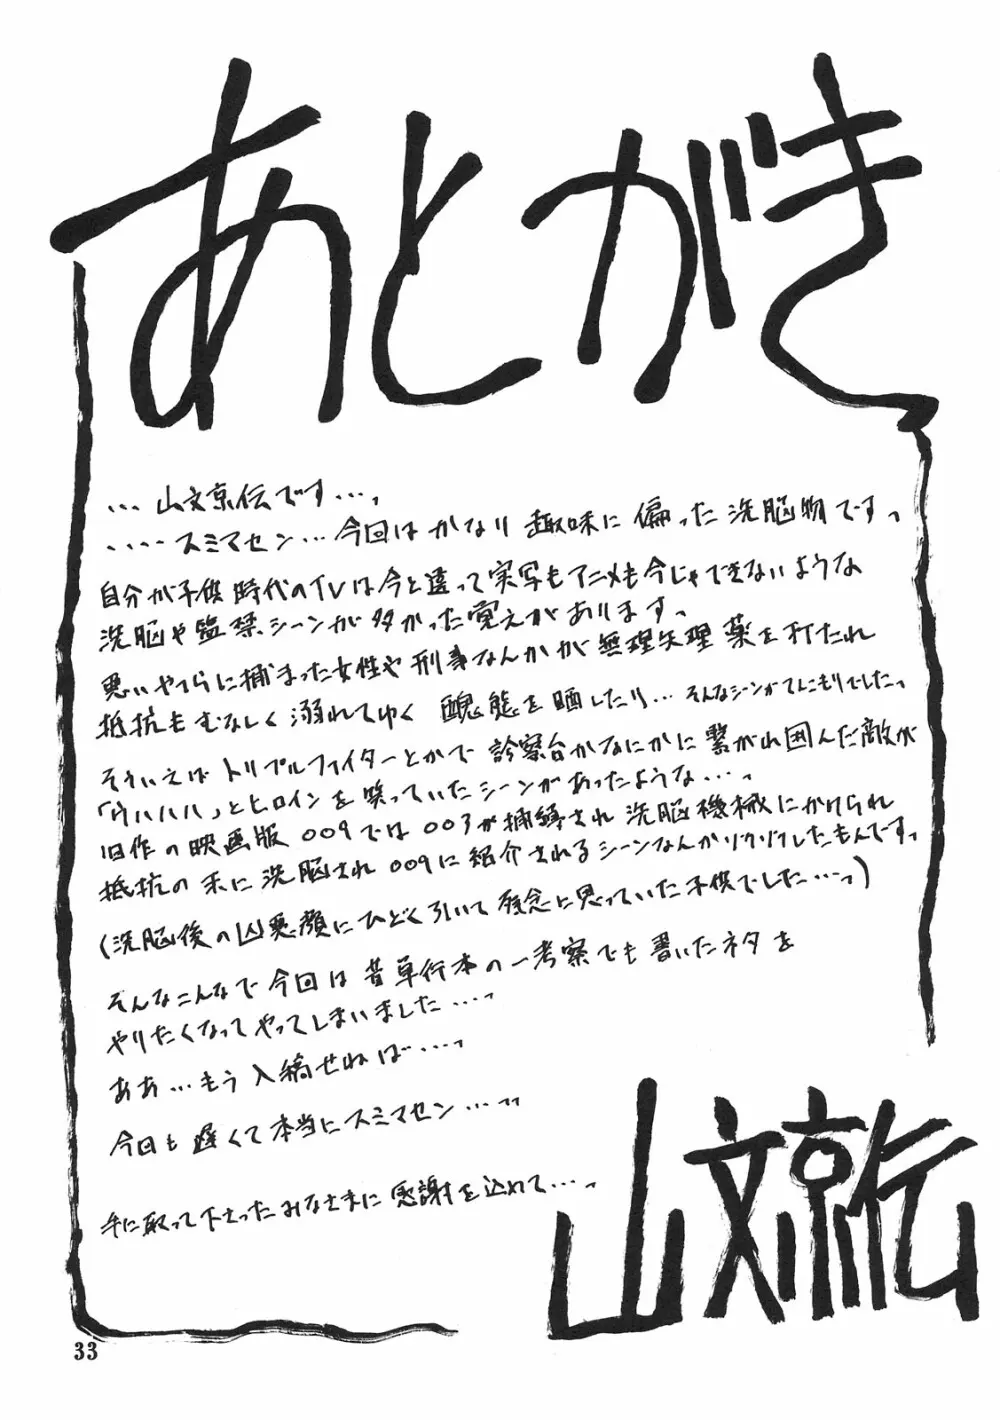 あとがき
…山文京伝です…、
…‥スミマセン…今回はかなり趣味に偏った洗脳物です、
自分が子供時代のTVは今と違って実写もアニメも今じゃできないような
洗脳や監禁シーンが多かった覚えがあります。
悪いやつらに捕まった女性や刑事なんかが無理矢理薬を打たれ
抵抗もむなしく溺れてゆく醜態を晒したり…そんなシーンがてんこもりでしたっ
そういえばトリプルファイターとかで診察台かなにかに繋がれ囲んだ敵が
「ウハハハハ」とヒロインを笑っていたシーンがあったような…、
旧作の映画版009では003が捕縛され洗脳機械にかけられ
抵抗の末に洗脳され009に紹介されるシーンなんかゾクゾクしたもんですっ
(洗脳後の凶悪顔にひどく引いて残念に思っていた子供でした…っ)
そんなこんなで今回は昔単行本の一考察でも書いたネタを
やりたくなってやってしまいました…、
ああ…もう入稿せねば…、
今回も遅くて本当にスミマセン…、、
手に取って下さったみなさまに感謝を込めて…、
山文京伝
33